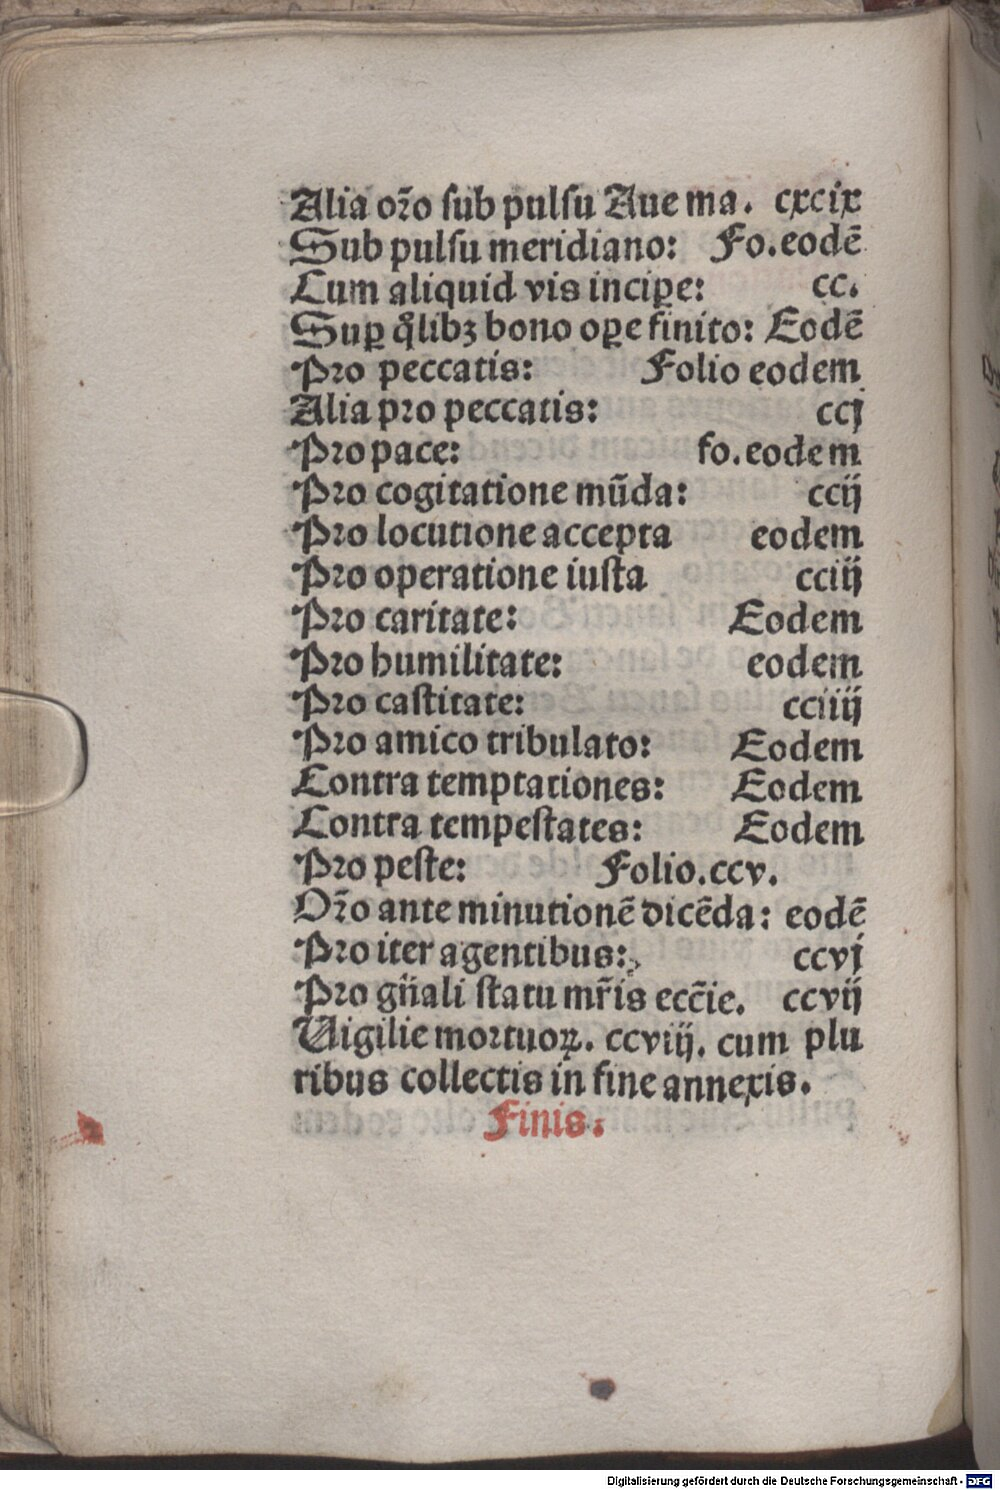 Alia or̃o sub pulsu Aue ma. cxcix
Sub pulsu meridiano: Fo.eodē
Cum aliquid vis incipe:  cc.
Sup q̄libꝫ bono ope finito: Eodē
Pro peccatis: Folio eodem
Alia pro peccatis: ccj
Pro pace: fo.eodem
Pro cogitatione mūda: ccij
Pro locutione accepta eodem
Pro operatione iusta cciij
Pro caritate: Eodem
Pro humilitate: eodem
Pro castitate: cciiij
Pro amico tribulato: Eodem
Contra temptationes: Eodem
Contra tempestates: Eodem
Pro peste: Folio.ccv.
Or̃o ante minutionē dicēda: eodē
Pro iter agentibus: ccvj
Pro gn̄ali statu mr̃is ecc̄ie. ccvij
Uigilie mortuoꝝ. ccviij. cum plu
ribus collectis in fine annexis.
Finis.
Digitalisierung gefördert durch die Deutsche Forschungsgemeinschaft - DFG